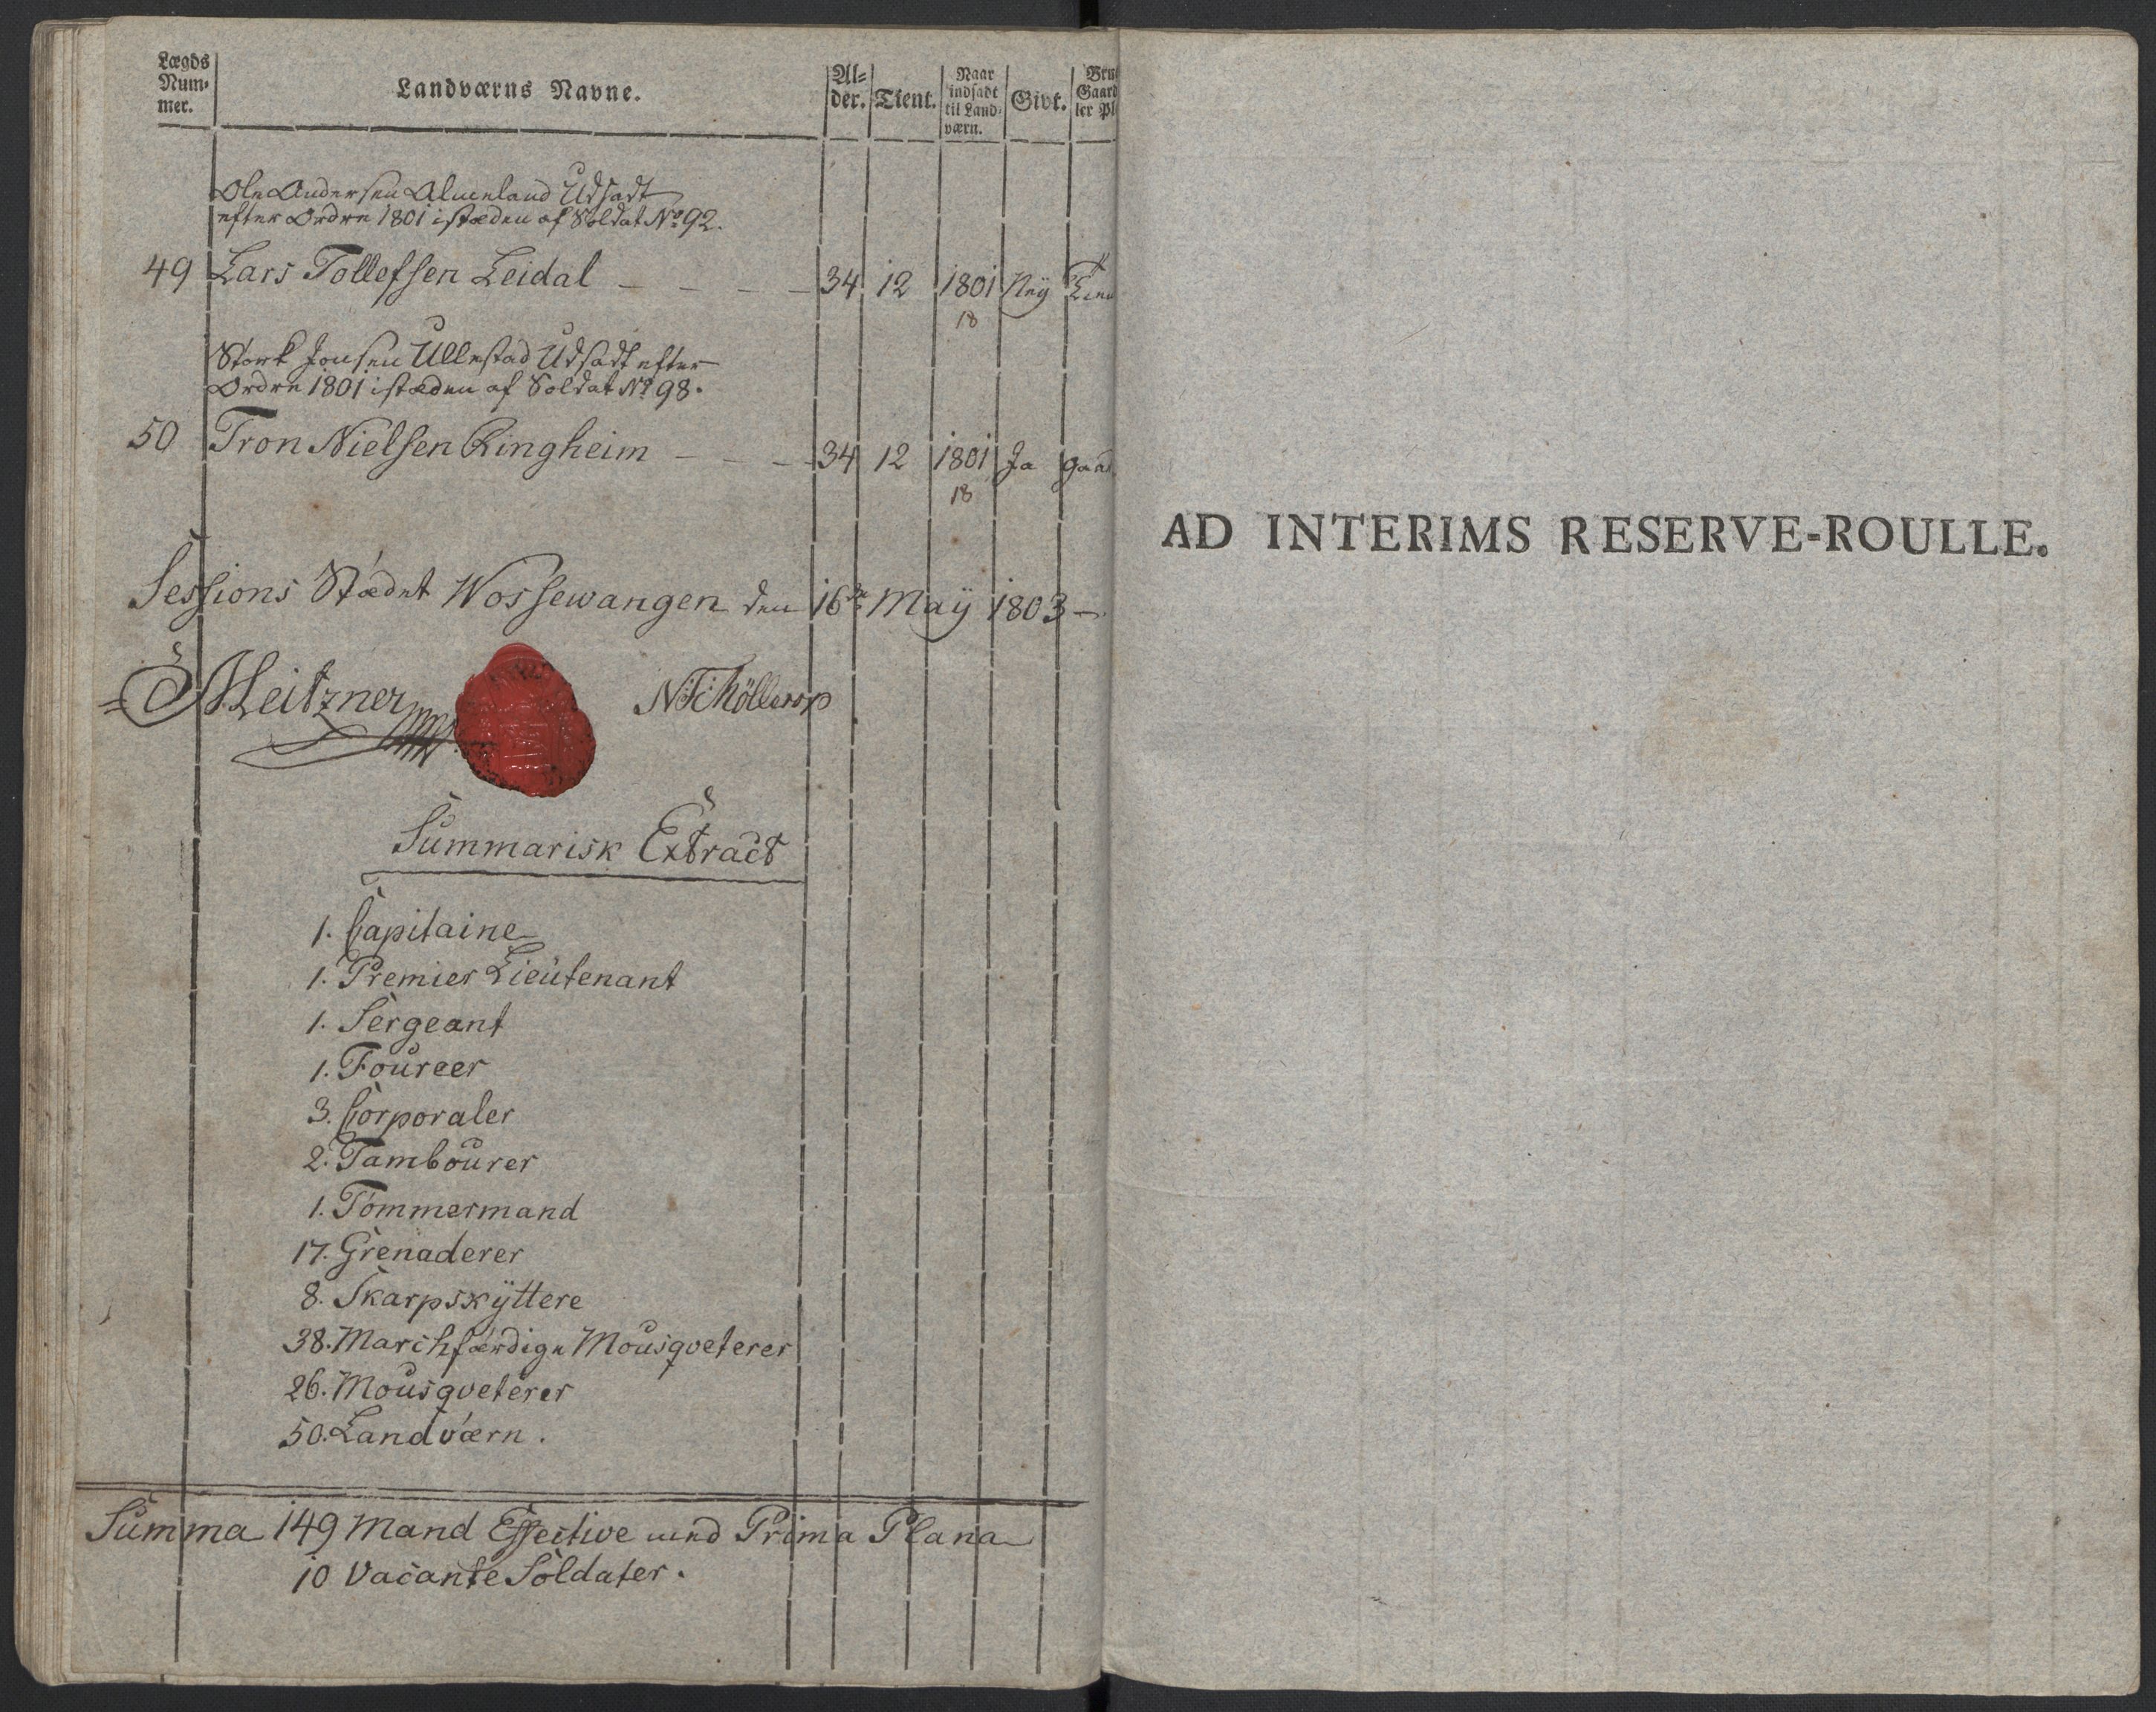 Lægds
Num-
mer.
Landværns Navne.
Al-
der.
Tient.
Naar
indsadt
til Land-
værn.
Givt.
Bru
Gaard
ler Pl
Ole Andersen Almeland Udsadt
efter Ordre 1801 istæden af Soldat No 92.
49 Lars Tollefsen Leidal – – – – 34 12 1801 Neÿ
18
Störk Jonsen Ullestad Udsadt efter
Ordre 1801 istæden af Soldat No 98.
50 Tron Nielsen Ringheim – – – 34 12 1801 Ja gaar
18
Sessions Stædet Wossewangen den 16de Maÿ 1803 –
Meitzner
Summarisk Extract
1. Capitaine
1. Premier Lieutenant
1. Sergeant
1. Foureer
3. Corporaler
2. Tambourer
1. Tömmermand
17. Grenaderer
8. Skarpskÿttere
38. Marchfærdige Mousqveterer
26. Mousqveterer
50. Landværn.
Summa 149 Mand Effective med Prima Plana
10 Vacante Soldater.
AD INTERIMS RESERVE-ROULLE.